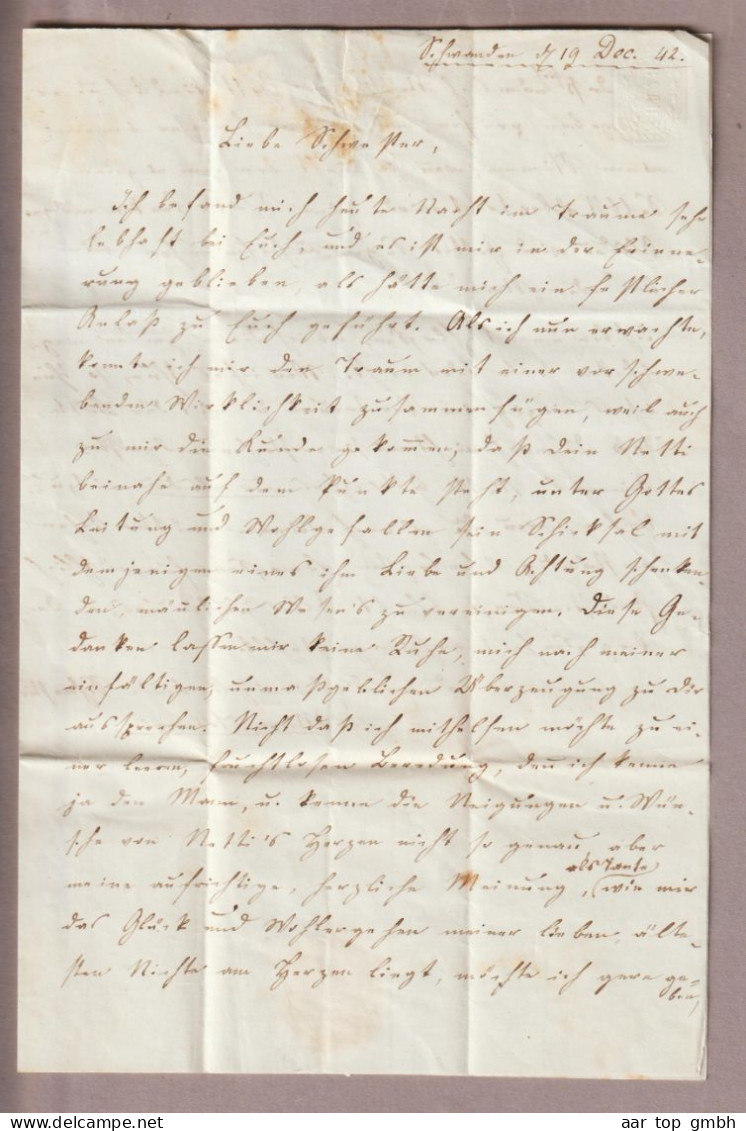 Schwanden d 19 Dec. 42.
Liebe Schwester,
Ich befand mich heute Nacht im Traume sehr
lebhaft bei Euch, und es ist mir in der Erinne-
rung geblieben, als hätte mich ein festlicher
Anlaß zu Euch geführt. Als ich nun erwachte,
konnte ich mir den Traum mit einer vorschwe-
benden Wirklichkeit zusammenfügen, weil auch
zu mir die Kunde gekommen, daß dein Netti
beinahe auf dem Punkte steht, unter Gottes
Leitung und Wohlgefallen sein Schicksal mit
demjenigen eines ihm Liebe und Achtung schenken-
den, mänlichen Wesens zu vereinigen. Diese Ge-
danken lassen mir keine Ruhe, mich nach meiner
einfältigen, unmaßgeblichen Überzeugung zu dir
aussprechen. Nicht daß ich mithelfen möchte zu ei-
ner leeren, fruchtlosen Beredung, denn ich kenne
ja den Mann, u. kenne die Neigungen u. Wün-
sche von Netti's Herzen nicht so genau, aber
meine aufrichtige, herzliche Meinung, als Tante, wie mir
das Glück und Wohlergehen meiner lieben, älte-
sten Nichte am Herzen liegt, möchte ich gern ge-
ben,
aar top gmbh